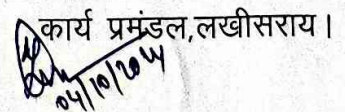 कार्य प्रमंडल,लखीसराय।
04/10/2014